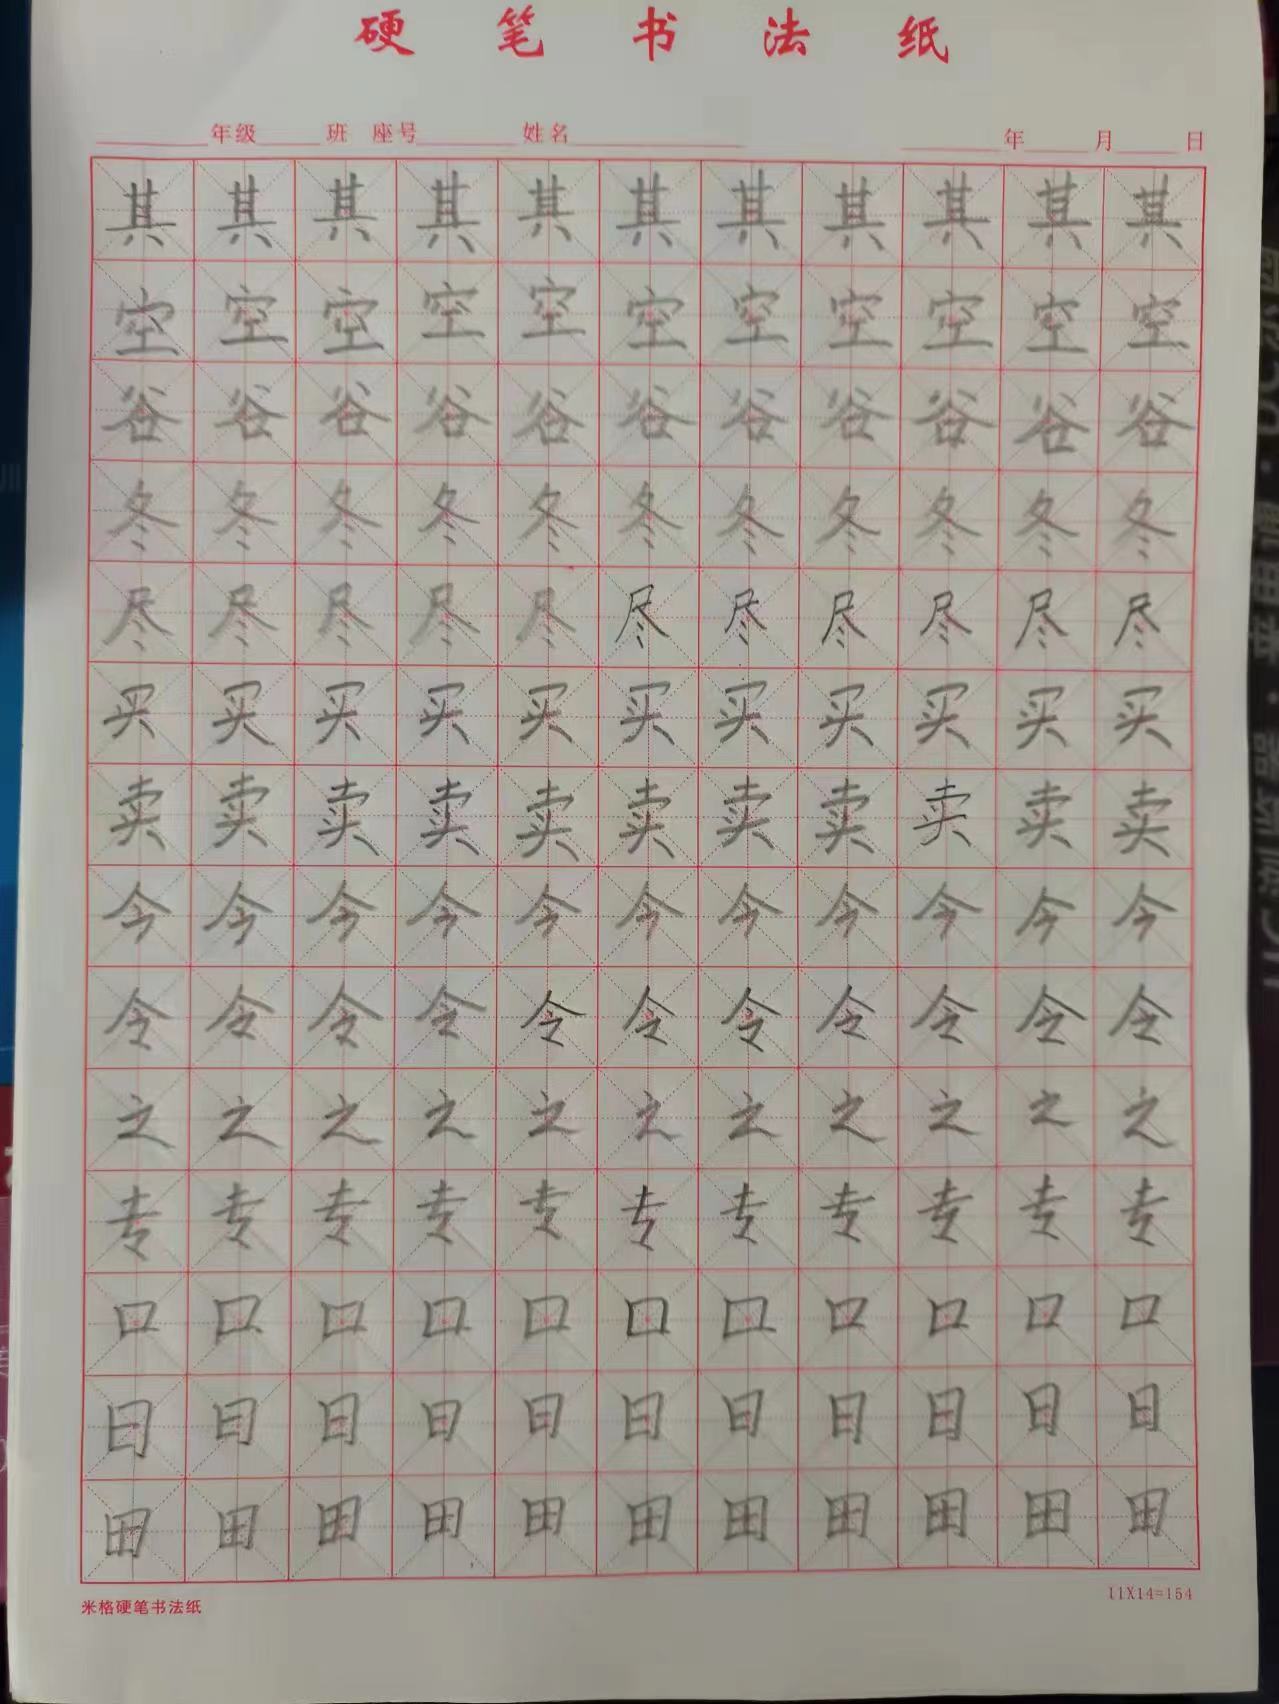 硬笔书法纸
年级 班 座号 姓名 年 月 日
其其其其其其其其其其其
空空空空空空空空空空空
谷谷谷谷谷谷谷谷谷谷谷
冬冬冬冬冬冬冬冬冬冬冬
尽尽尽尽尽尽尽尽尽尽尽
买买买买买买买买买买买
卖卖卖卖卖卖卖卖卖卖卖
今今今今今今今今今今今
令令令令令令令令令令令
之之之之之之之之之之之
专专专专专专专专专专专
口口口口口口口口口口口
日日日日日日日日日日日
田田田田田田田田田田田
米格硬笔书法纸 11X14=154